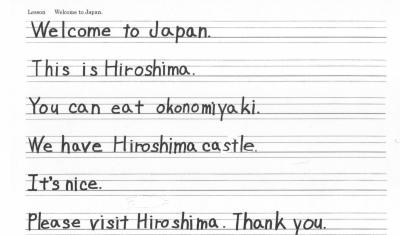 Lesson Welcome to Japan.
Welcome to Japan.
This is Hiroshima.
You can eat okonomiyaki.
We have Hiroshima castle.
It's nice.
Please visit Hiroshima. Thank you.